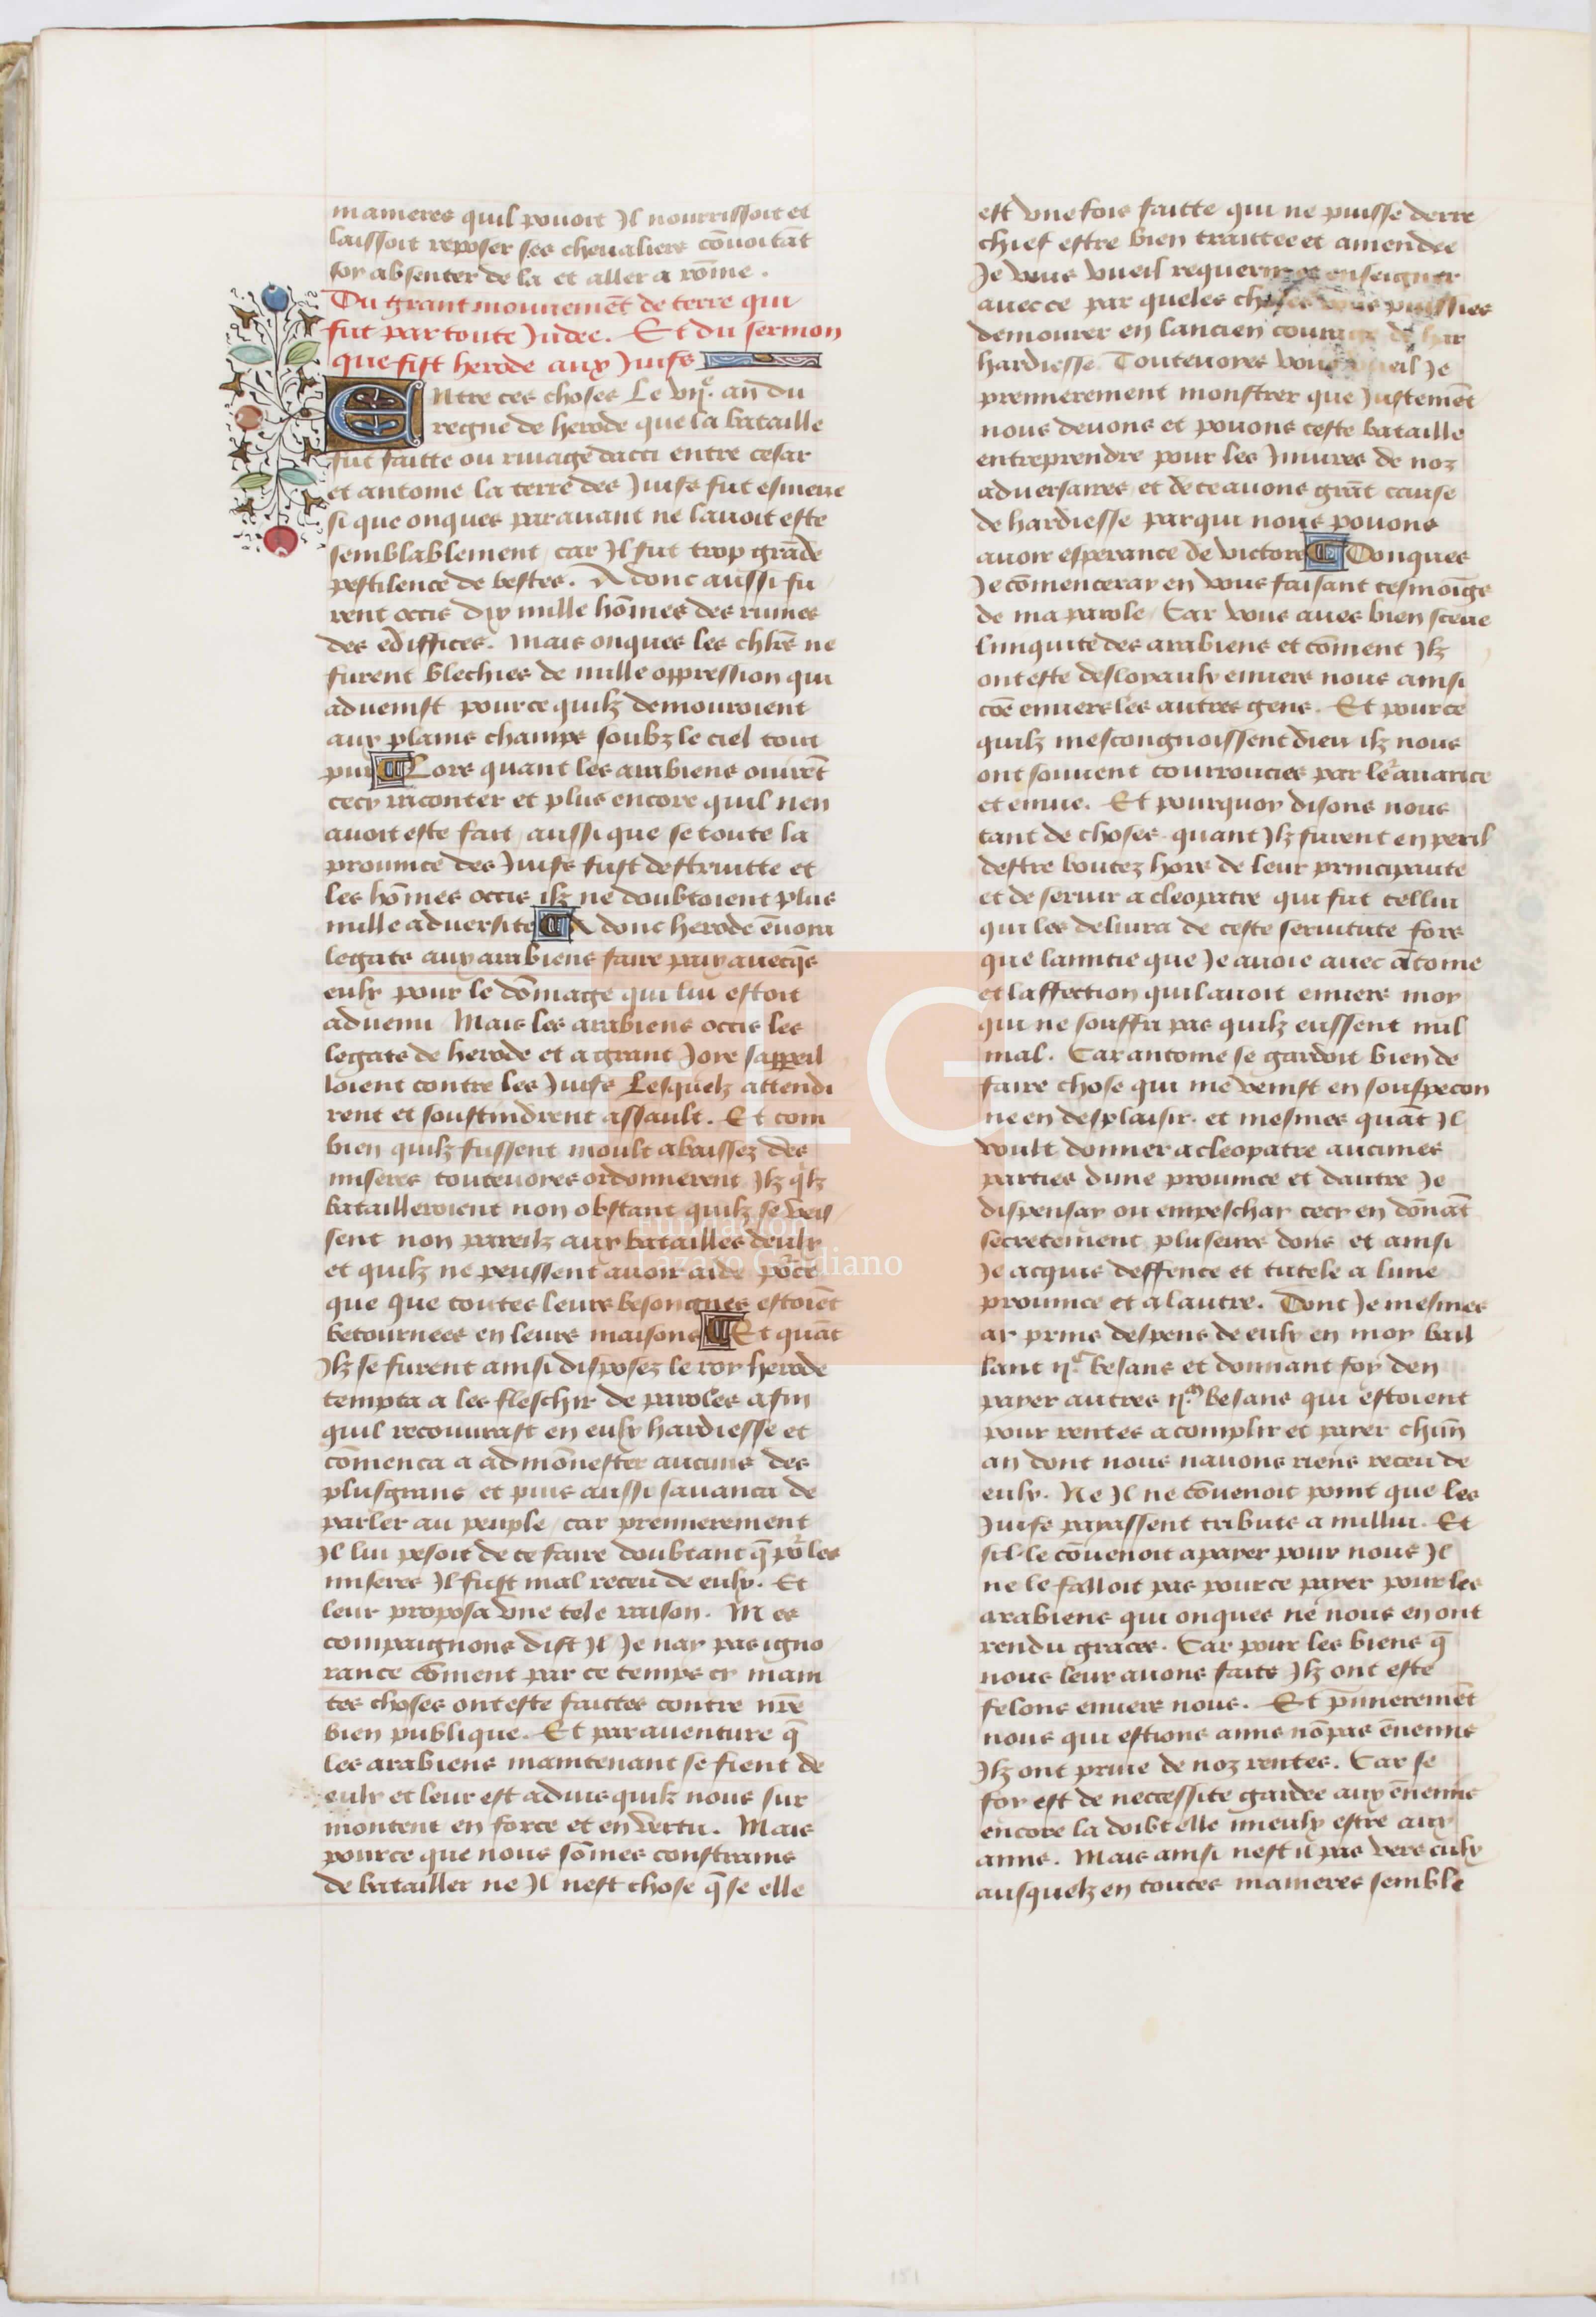 manieres quil pouoit Il nourrissoit et
laissoit reposer ses cheualiers cōuoitāt
soy absenter de la et aller a rōme .
Du grant mouuemēt de terre qui
fut par toute Iudee. Et du sermon
que fist herode aux Iuifs
Entre ces choses Le vije. an du
regne de herode que la bataille
fut faitte ou riuage dacti entre cesar
et antoine la terre des Iuifs fut esmeue
si que onques parauant ne lauoit este
semblablement / car Il fut trop grāde
pestilence de bestes. A donc aussi fu
rent occis dix mille hōmes des ruines
des ediffices. Mais onques les chlrs ne
furent blechies de nulle oppression qui
aduenist pource quilz demouroient
aux plains champs soubz le ciel tout
pur Lors quant les arabiens ouirēt
cecy raconter et plus encore quil nen
auoit este fait / aussi que se toute la
prouince des Iuifs fust destruitte et
les hōmes occis ilz ne doubtoient plus
nulle aduersite A donc herode ēuoia
legats aux arabiens faire paix auecqs
eulx pour le dōmage qui lui estoit
aduenu Mais les arabiens occis les
legats de herode et a grant Ioye sappeil
loient contre les Iuifs Lesquelz attendi
rent et soustindrent assault. Et com
bien quilz fussent moult abaissez des
miseres toutenoies ordonnerent Ilz qlz
batailleroient non obstant quilz se veis
sent non pareilz aux batailles deulx
et quilz ne peussent auoir aide poce
que que toutes leurs besongnes estoiēt
betournees en leurs maisons Et quāt
Ilz se furent ainsi disposez le roy herode
tempta a les fleschir de paroles afin
quil recouurast en eulx hardiesse et
cōmenca a admōnester aucuns des
plusgrans et puis aussi sauanca de
parler au peuple / car premierement
Il lui pesoit de ce faire doubtant q̄ po les
miseres Il fust mal receu de eulx. Et
leur proposa vne tele raison. Mes
compaignons dist Il Ie nay pas igno
rance cōment par ce temps cy main
tes choses ont este faictes contre nr̄e
bien publique. Et parauenture q̄
les arabiens maintenant se fient de
eulx et leur est aduis quilz nous sur
montent en force et en vertu. Mais
pource que nous sōmes constrains
de batailler ne Il nest chose q̄ se elle
est vne fois faitte qui ne puisse derre
chief estre bien traittee et amendee
Ie vous vueil requerir et enseigner
auec ce par queles choses vous puissies
demourer en lancien courage de har
hardiesse Toutenoies vous vueil Ie
premierement monstrer que Iustemēt
nous deuons et pouons ceste bataille
entreprendre pour les Iniures de noz
aduersaires et de ce auons grāt cause
de hardiesse par qui nous pouons
auoir esperance de victore Donques
Ie cōmenceray en vous faisant tesmoigs
de ma parole / Car vous aues bien sceue
liniquite des arabiens et cōment Ilz
ont este desloyaulx enuers nous ainsi
cōe enuers les autres gens. Et pource
quilz mescongnoissent dieu ilz nous
ont souuent courroucies par ler auarice
et enuie. Et pourquoy disons nous
tant de choses quant Ilz furent en peril
destre boutez hors de leur principaute
et de seruir a cleopatre qui fut cellui
qui les deliura de ceste seruitute fors
que lamitie que Ie auoie auec ātoine
et laffection quil auoit enuers moy
qui ne souffri pas quilz eussent nul
mal. Car antoine se gardoit bien de
faire chose qui me venist en souspecon
ne en desplaisir. et mesmes quāt Il
voult donner a cleopatre aucunes
parties dune prouince et dautre Ie
dispensay ou empeschay cecy en dōnāt
secretement pluseurs dons et ainsi
Ie acquis deffence et tutele a lune
prouince et a lautre. Dont Ie mesmes
ay prins despens de eulx en moy bail
lant ijc besans et donnant foy den
payer autres ijc besans qui estoient
pour rentes acomplir et payer chūn
an dont nous nauons riens receu de
eulx. Ne Il ne cōuenoit point que les
Iuifs payassent tributs a nullui. Et
sil le cōuenoit a payer pour nous Il
ne le falloit pas pource payer pour les
arabiens qui onques ne nous en ont
rendu graces. Car pour les biens q̄
nous leur auons faits Ilz ont este
felons enuers nous. Et p̄mieremēt
nous qui estions amis nōpas ēnemis
Ilz ont priue de noz rentes. Car se
foy est de neccessite gardee aux ēnemis
encore la doibt elle mieulx estre aux
amis. Mais ainsi nest il pas vers eulx
ausquelz en toutes manieres semble
Fundación
Lázaro Galdiano
151